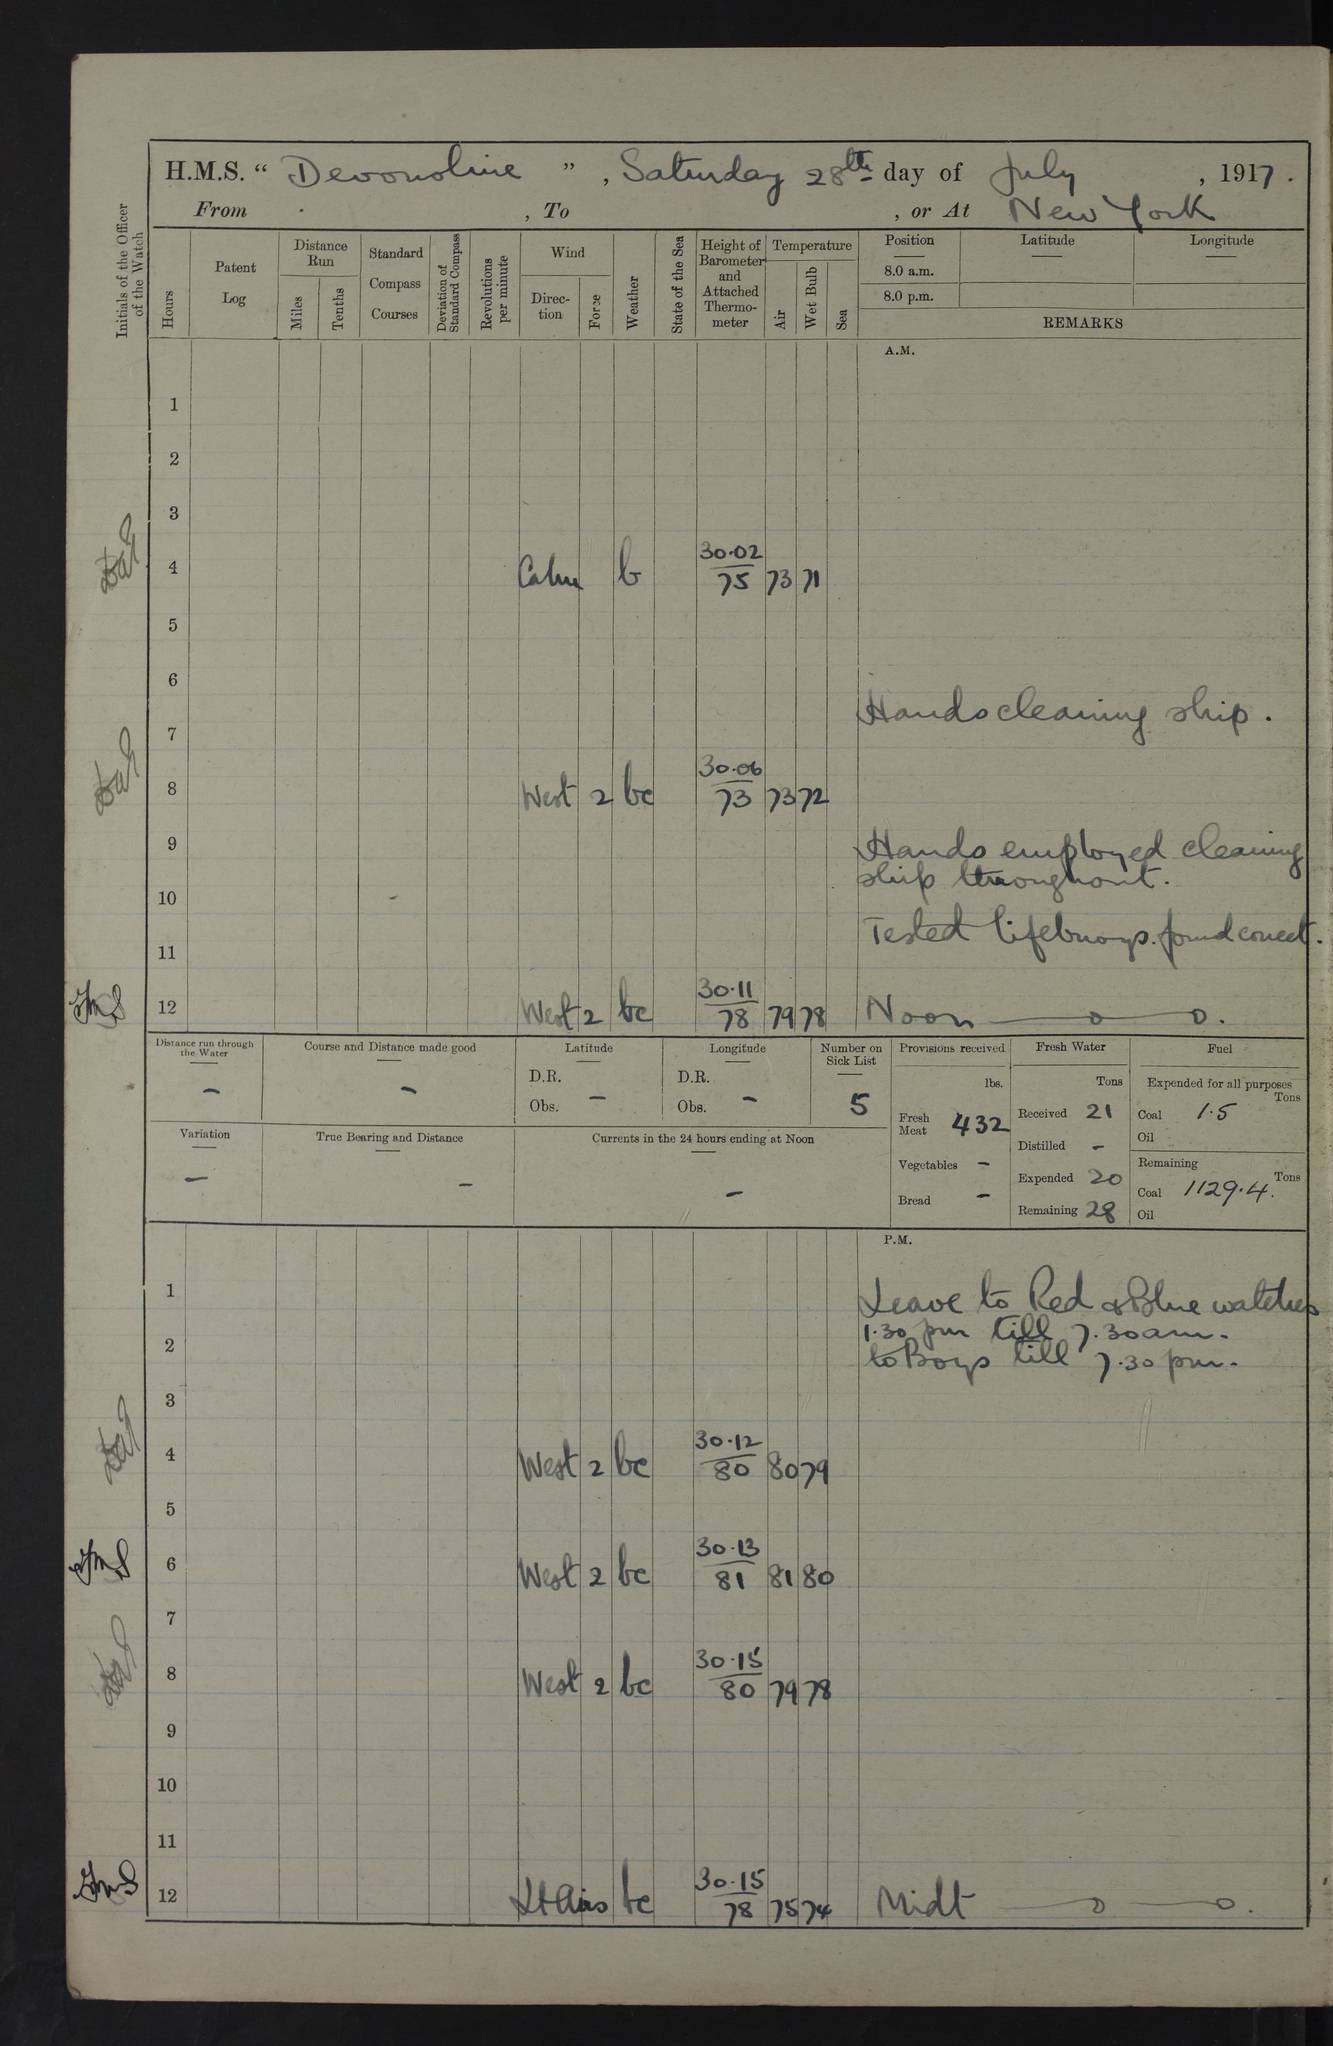 H.M.S. “ Devonshire ” , Saturday 28th day of July , 1917.
From , To , or At New York
Initials of the Officer of the Watch
Hours
Patent Log
Distance Run
Miles
Tenths
Standard Compass Courses
Deviation of Standard Compass
Revolutions per minute
Wind
Direc-tion
Force
Weather
State of the Sea
Height of Barometer and Attached Thermo-meter
Temperature
Air
Wet Bulb
Sea
Position Latitude Longitude
8.0 a.m.
8.0 p.m.
REMARKS
A.M.
1
2
3
4 Calm b 30.02 75 73 71
5
6
Hands cleaning ship.
7
8 West 2 bc 30.06 73 73 72
9 Hands employed cleaning
ship throughout.
10
Tested lifebuoys. found correct.
11
12 West 2 bc 30.11 78 79 78 Noon
Distance run through the Water
–
Course and Distance made good
–
Latitude
D.R.
Obs. –
Longitude
D.R.
Obs. –
Number on Sick List
5
Provisions received
lbs.
Fresh Meat 432
Vegetables –
Bread –
Fresh Water
Tons
Received 21
Distilled –
Expended 20
Remaining 28
Fuel
Expended for all purposes
Tons
Coal 1.5
Oil
Remaining
Tons
Coal 1129.4.
Oil
Variation
–
True Bearing and Distance
–
Currents in the 24 hours ending at Noon
–
P.M.
1 Leave to Red & Blue watches
1.30 pm till 7.30 am.
2 to Boys till 7.30 pm.
3
4 West 2 bc 30.12 80 80 79
5
6 West 2 bc 30.13 81 81 80
7
8 West 2 bc 30.15 80 79 78
9
10
11
12 Lt Airs bc 30.15 78 75 74 Midt